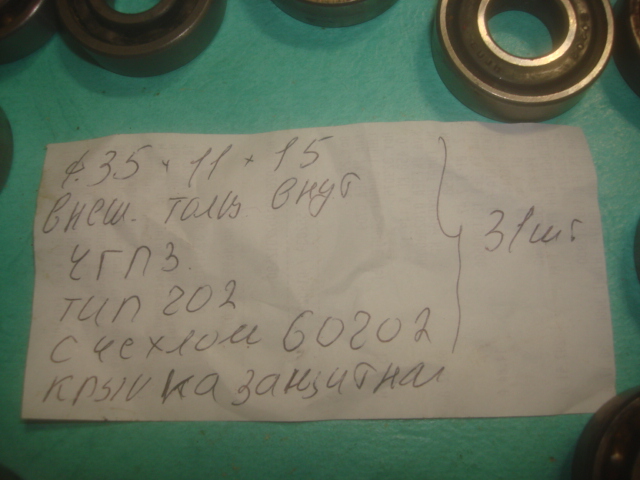 ф. 35 × 11 × 15
внеш. толщ внут
4ГПЗ.
тип 202
с чехлом 60202
крышка защитная
31шт